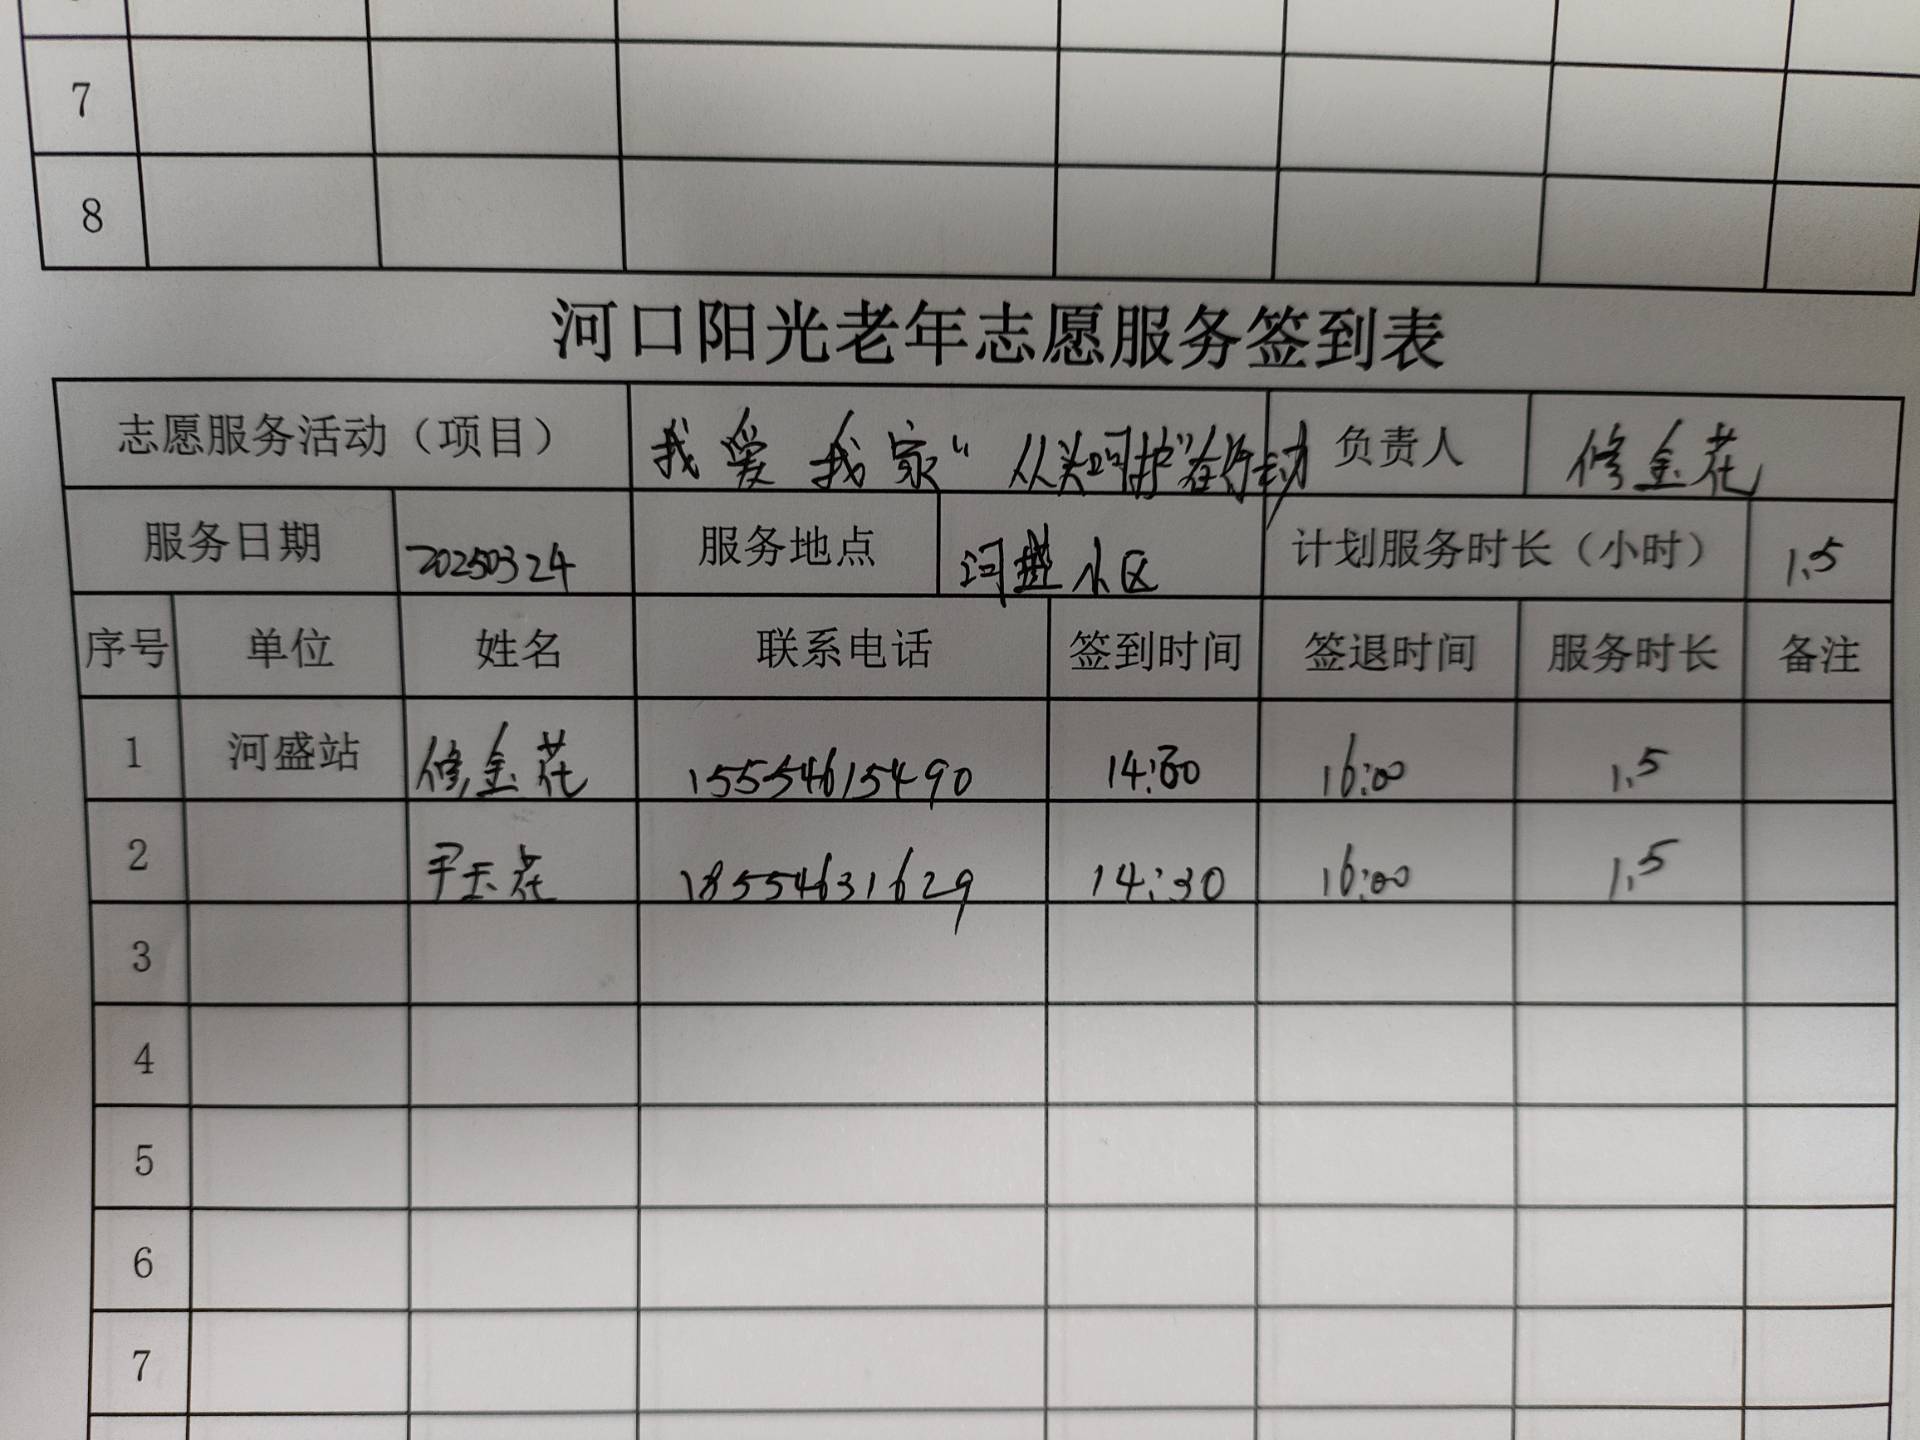 7
8
河口阳光老年志愿服务签到表
志愿服务活动（项目） 我爱我家“从头呵护”在行动 负责人 修金花
服务日期 20250324 服务地点 河盛小区 计划服务时长（小时） 1.5
序号 单位 姓名 联系电话 签到时间 签退时间 服务时长 备注
1 河盛站 修金花 15554615490 14:30 16:00 1.5
2 尹玉花 18554631629 14:30 16:00 1.5
3
4
5
6
7